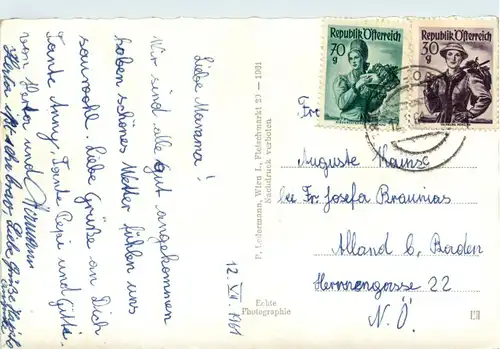 Liebe Mamama!
Wir sind alle gut angekommen
haben schönes Wetter fühlen uns
sauwohl. Liebe Grüße an Dich
Tante Anny, Tante Pepi und Gitti.
von Herta und Hermann
12. VII. 1961
P. Ledermann, Wien I., Fleischmarkt 20 — 1961
Nachdruck verboten
Echte
Photographie
Republik Österreich
70
g
Republik Österreich
30
g
Auguste
bei Fr. Josefa Braunias
Alland b. Baden
Herrengasse 22
N.Ö.